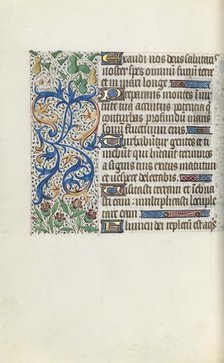 Exaudi nos deus salutaris
noster spes omnium finiū terre
et in mari longe
Preparans montes in uir
tute tua accinctus potencia q̄
conturbas profundū maris
sonū fluctuum eius
Turbabūtur gentes et ti
mebūt qui hītant terminos
a signis tuis exitus matutini
et uespere delectabis
Uisitasti terram et inebria
sti eam multiplicasti locuple
tare eam
flumen dei repletū est aquis